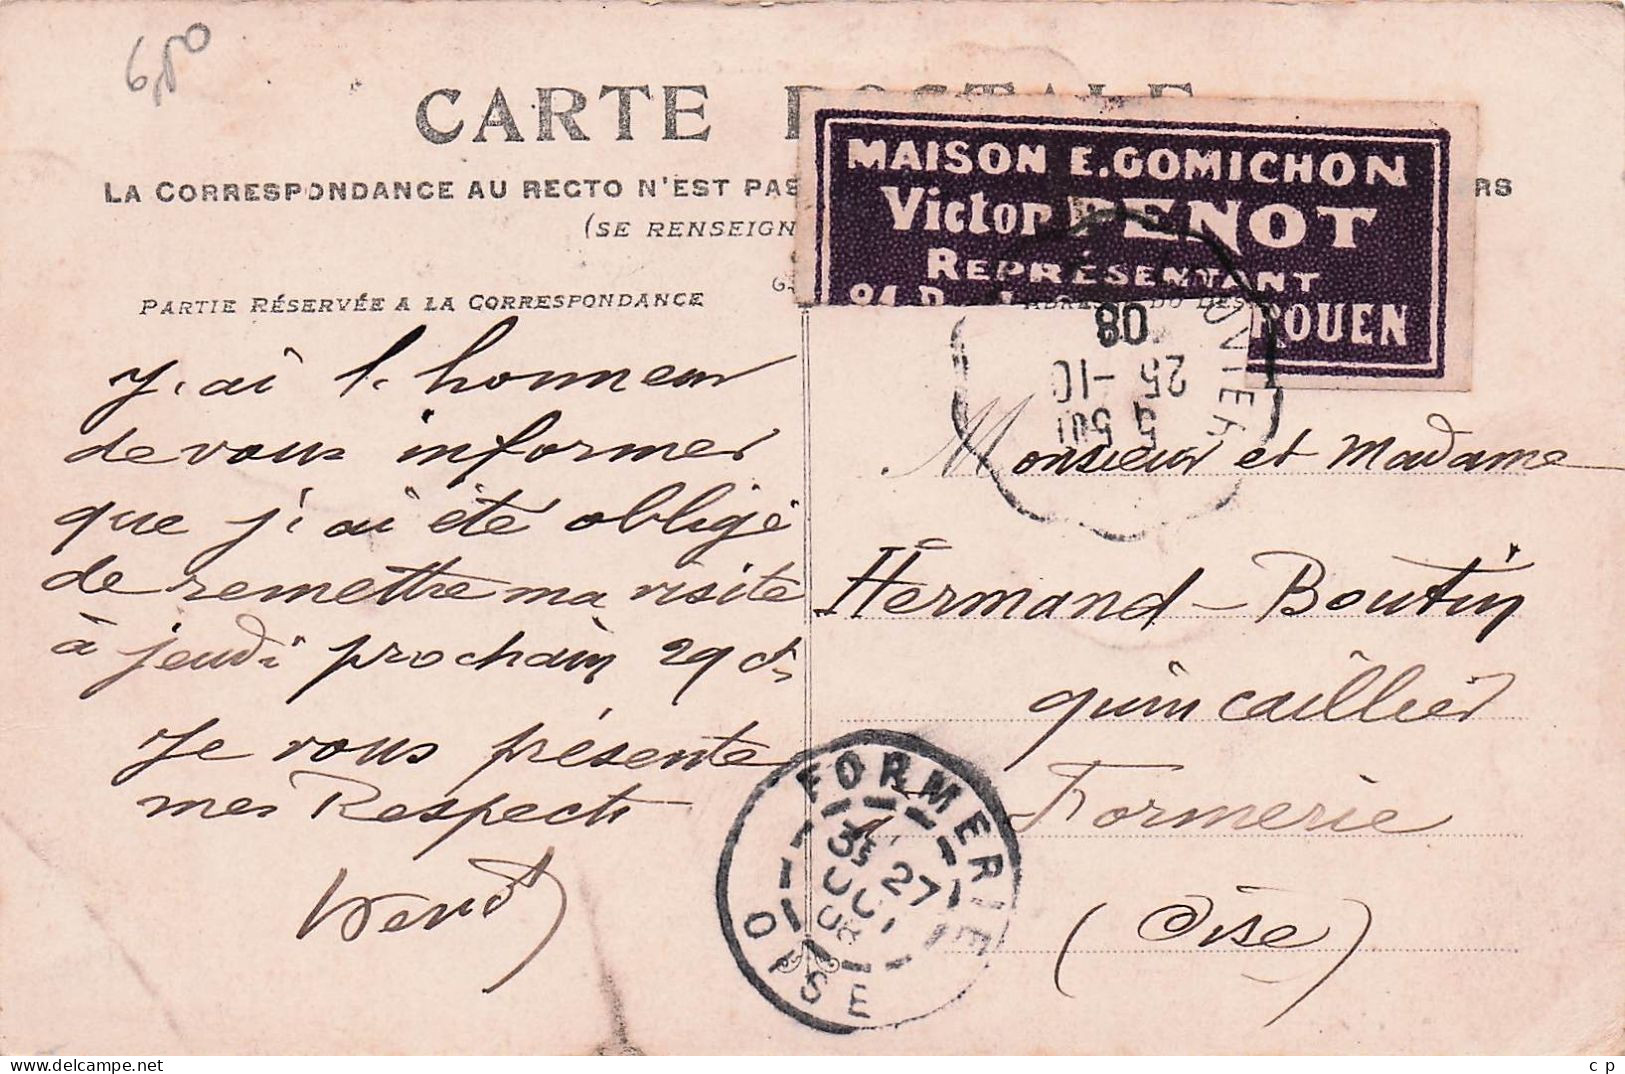 6,50
CARTE POSTALE
MAISON E. GOMICHON
LA CORRESPONDANCE AU RECTO N'EST PAS
RS
Victor PENOT
(SE RENSEIGN
REPRÉSENTANT
ROUEN
PARTIE RÉSERVÉE A LA CORRESPONDANCE
08
25 -10
J'ai l'honneur
de vous informer
que j'ai été obligé
de remettre ma visite
à jeudi prochain 29 ct
Je vous présente
mes Respects
Monsieur et Madame
Hermand-Boutin
quincaillier
Formerie
(Oise)
FORMERIE
27
OISE
c p